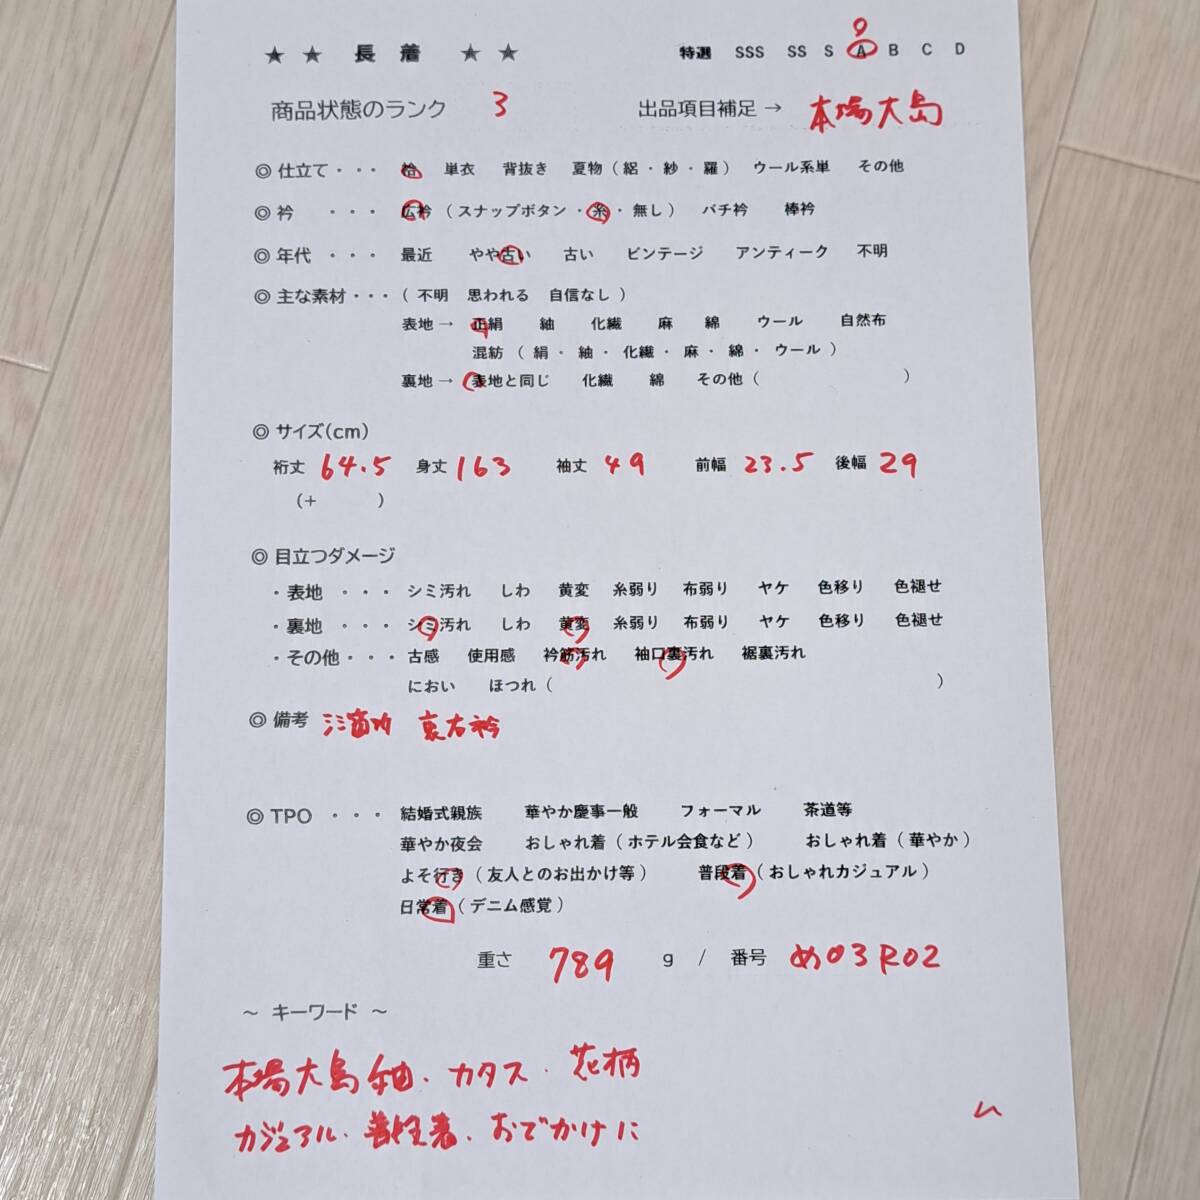 9
★ ★ 長 着 ★ ★ 特選 SSS SS S A B C D
商品状態のランク 3 出品項目補足 → 本場大島
◎ 仕立て・・・ 袷 単衣 背抜き 夏物(絽・紗・羅) ウール系単 その他
◎ 衿 ・・・ 広衿 (スナップボタン・糸・無し) バチ衿 棒衿
◎ 年代 ・・・ 最近 やや古い 古い ビンテージ アンティーク 不明
◎ 主な素材・・・ ( 不明 思われる 自信なし )
表地 → 正絹 紬 化繊 麻 綿 ウール 自然布
混紡 ( 絹・紬・化繊・麻・綿・ウール )
裏地 → 表地と同じ 化繊 綿 その他 ( )
◎ サイズ(cm)
裄丈 64.5 身丈 163 袖丈 49 前幅 23.5 後幅 29
(+ )
◎ 目立つダメージ
・表地 ・・・ シミ汚れ しわ 黄変 糸弱り 布弱り ヤケ 色移り 色褪せ
・裏地 ・・・ シミ汚れ しわ 黄変 糸弱り 布弱り ヤケ 色移り 色褪せ
・その他・・・ 古感 使用感 衿筋汚れ 袖口裏汚れ 裾裏汚れ
におい ほつれ ( )
◎ 備考 裏右衿
◎ TPO ・・・ 結婚式親族 華やか慶事一般 フォーマル 茶道等
華やか夜会 おしゃれ着 (ホテル会食など) おしゃれ着 (華やか)
よそ行き (友人とのお出かけ等) 普段着 (おしゃれカジュアル)
日常着 (デニム感覚)
重さ 789 g / 番号 め03R02
～ キーワード ～
本場大島紬・カタス・花柄
カジュアル・普段着・おでかけに